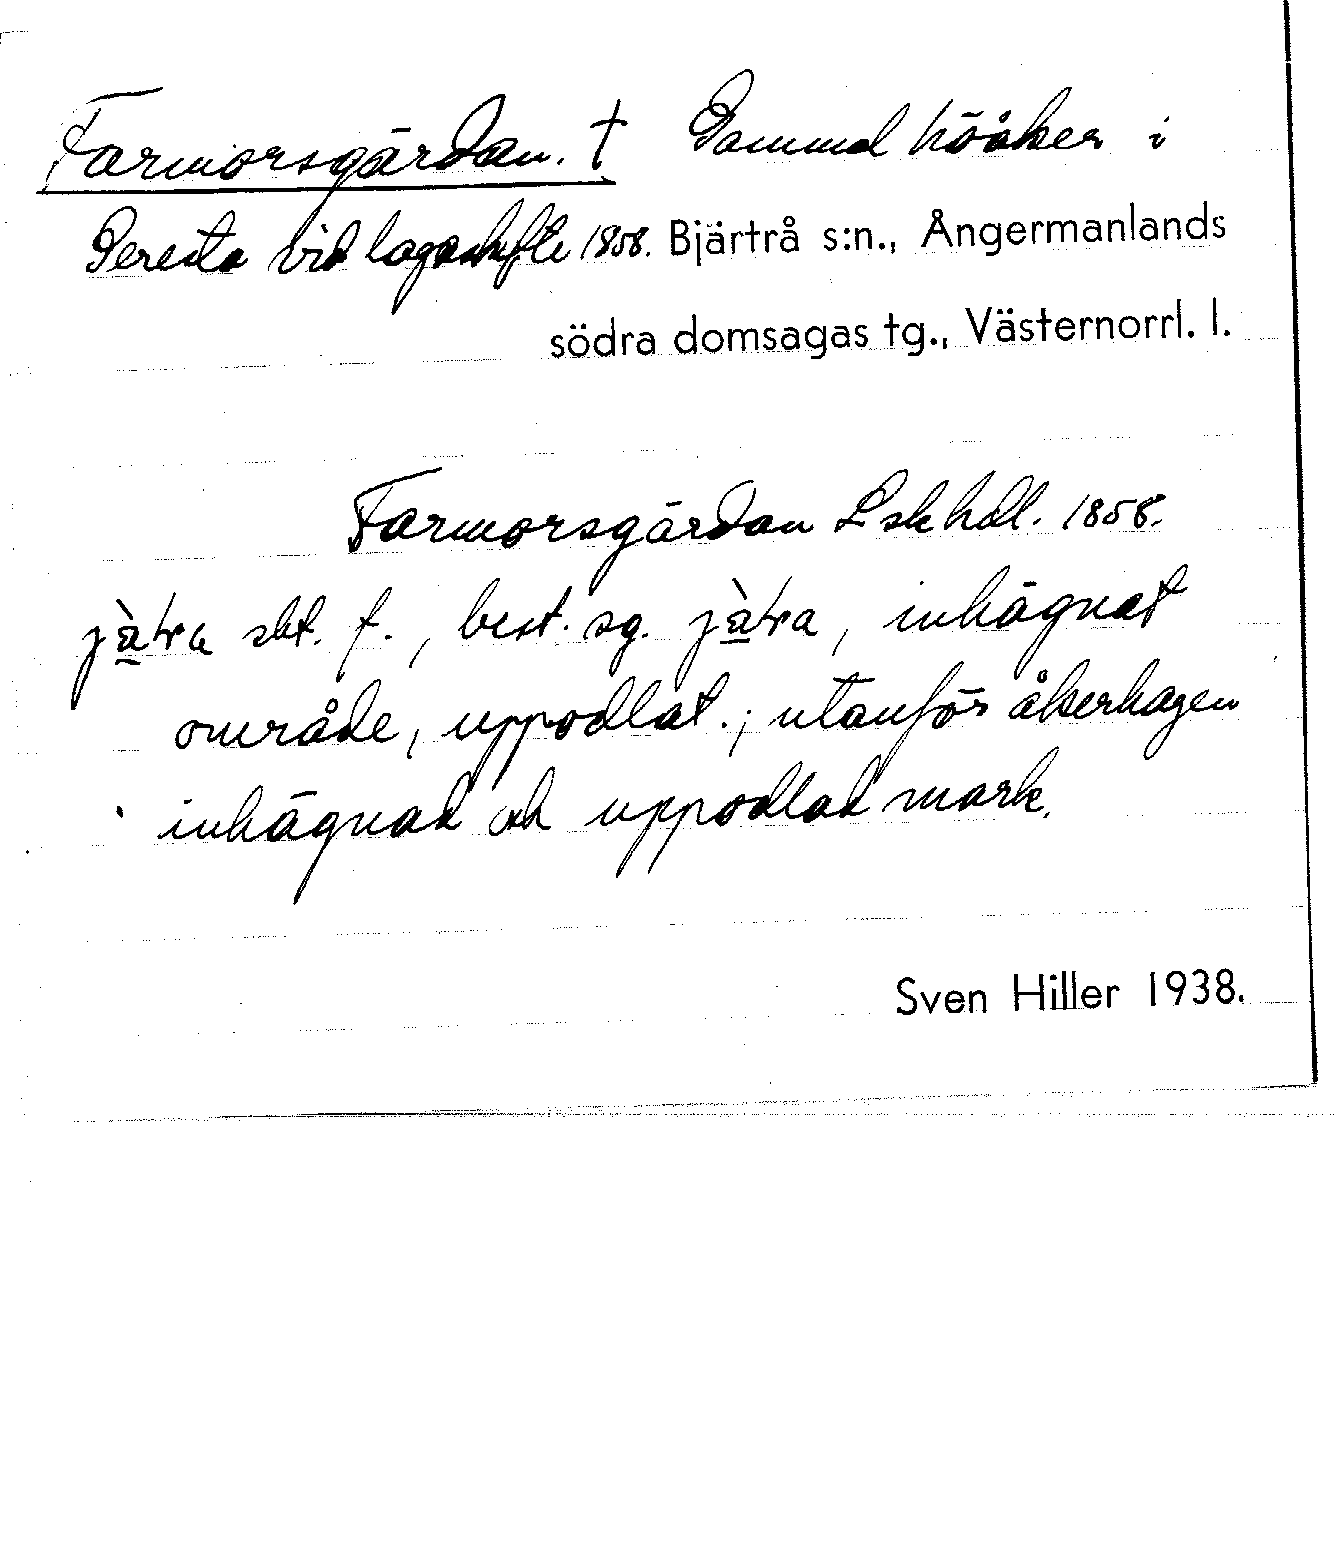 Farmorsgärdan. † Gammal höåker i
Geresta vid laga skifte 1858. Bjärtrå s:n., Ångermanlands
södra domsagas tg., Västernorrl. l.
Farmorsgärdan Lskhdl. 1858.
jàtra sbt. f., best. sg. jàtra, inhägnat
område, uppodlat.; utanför åkerhagen
inhägnad och uppodlad mark.
Sven Hiller 1938.